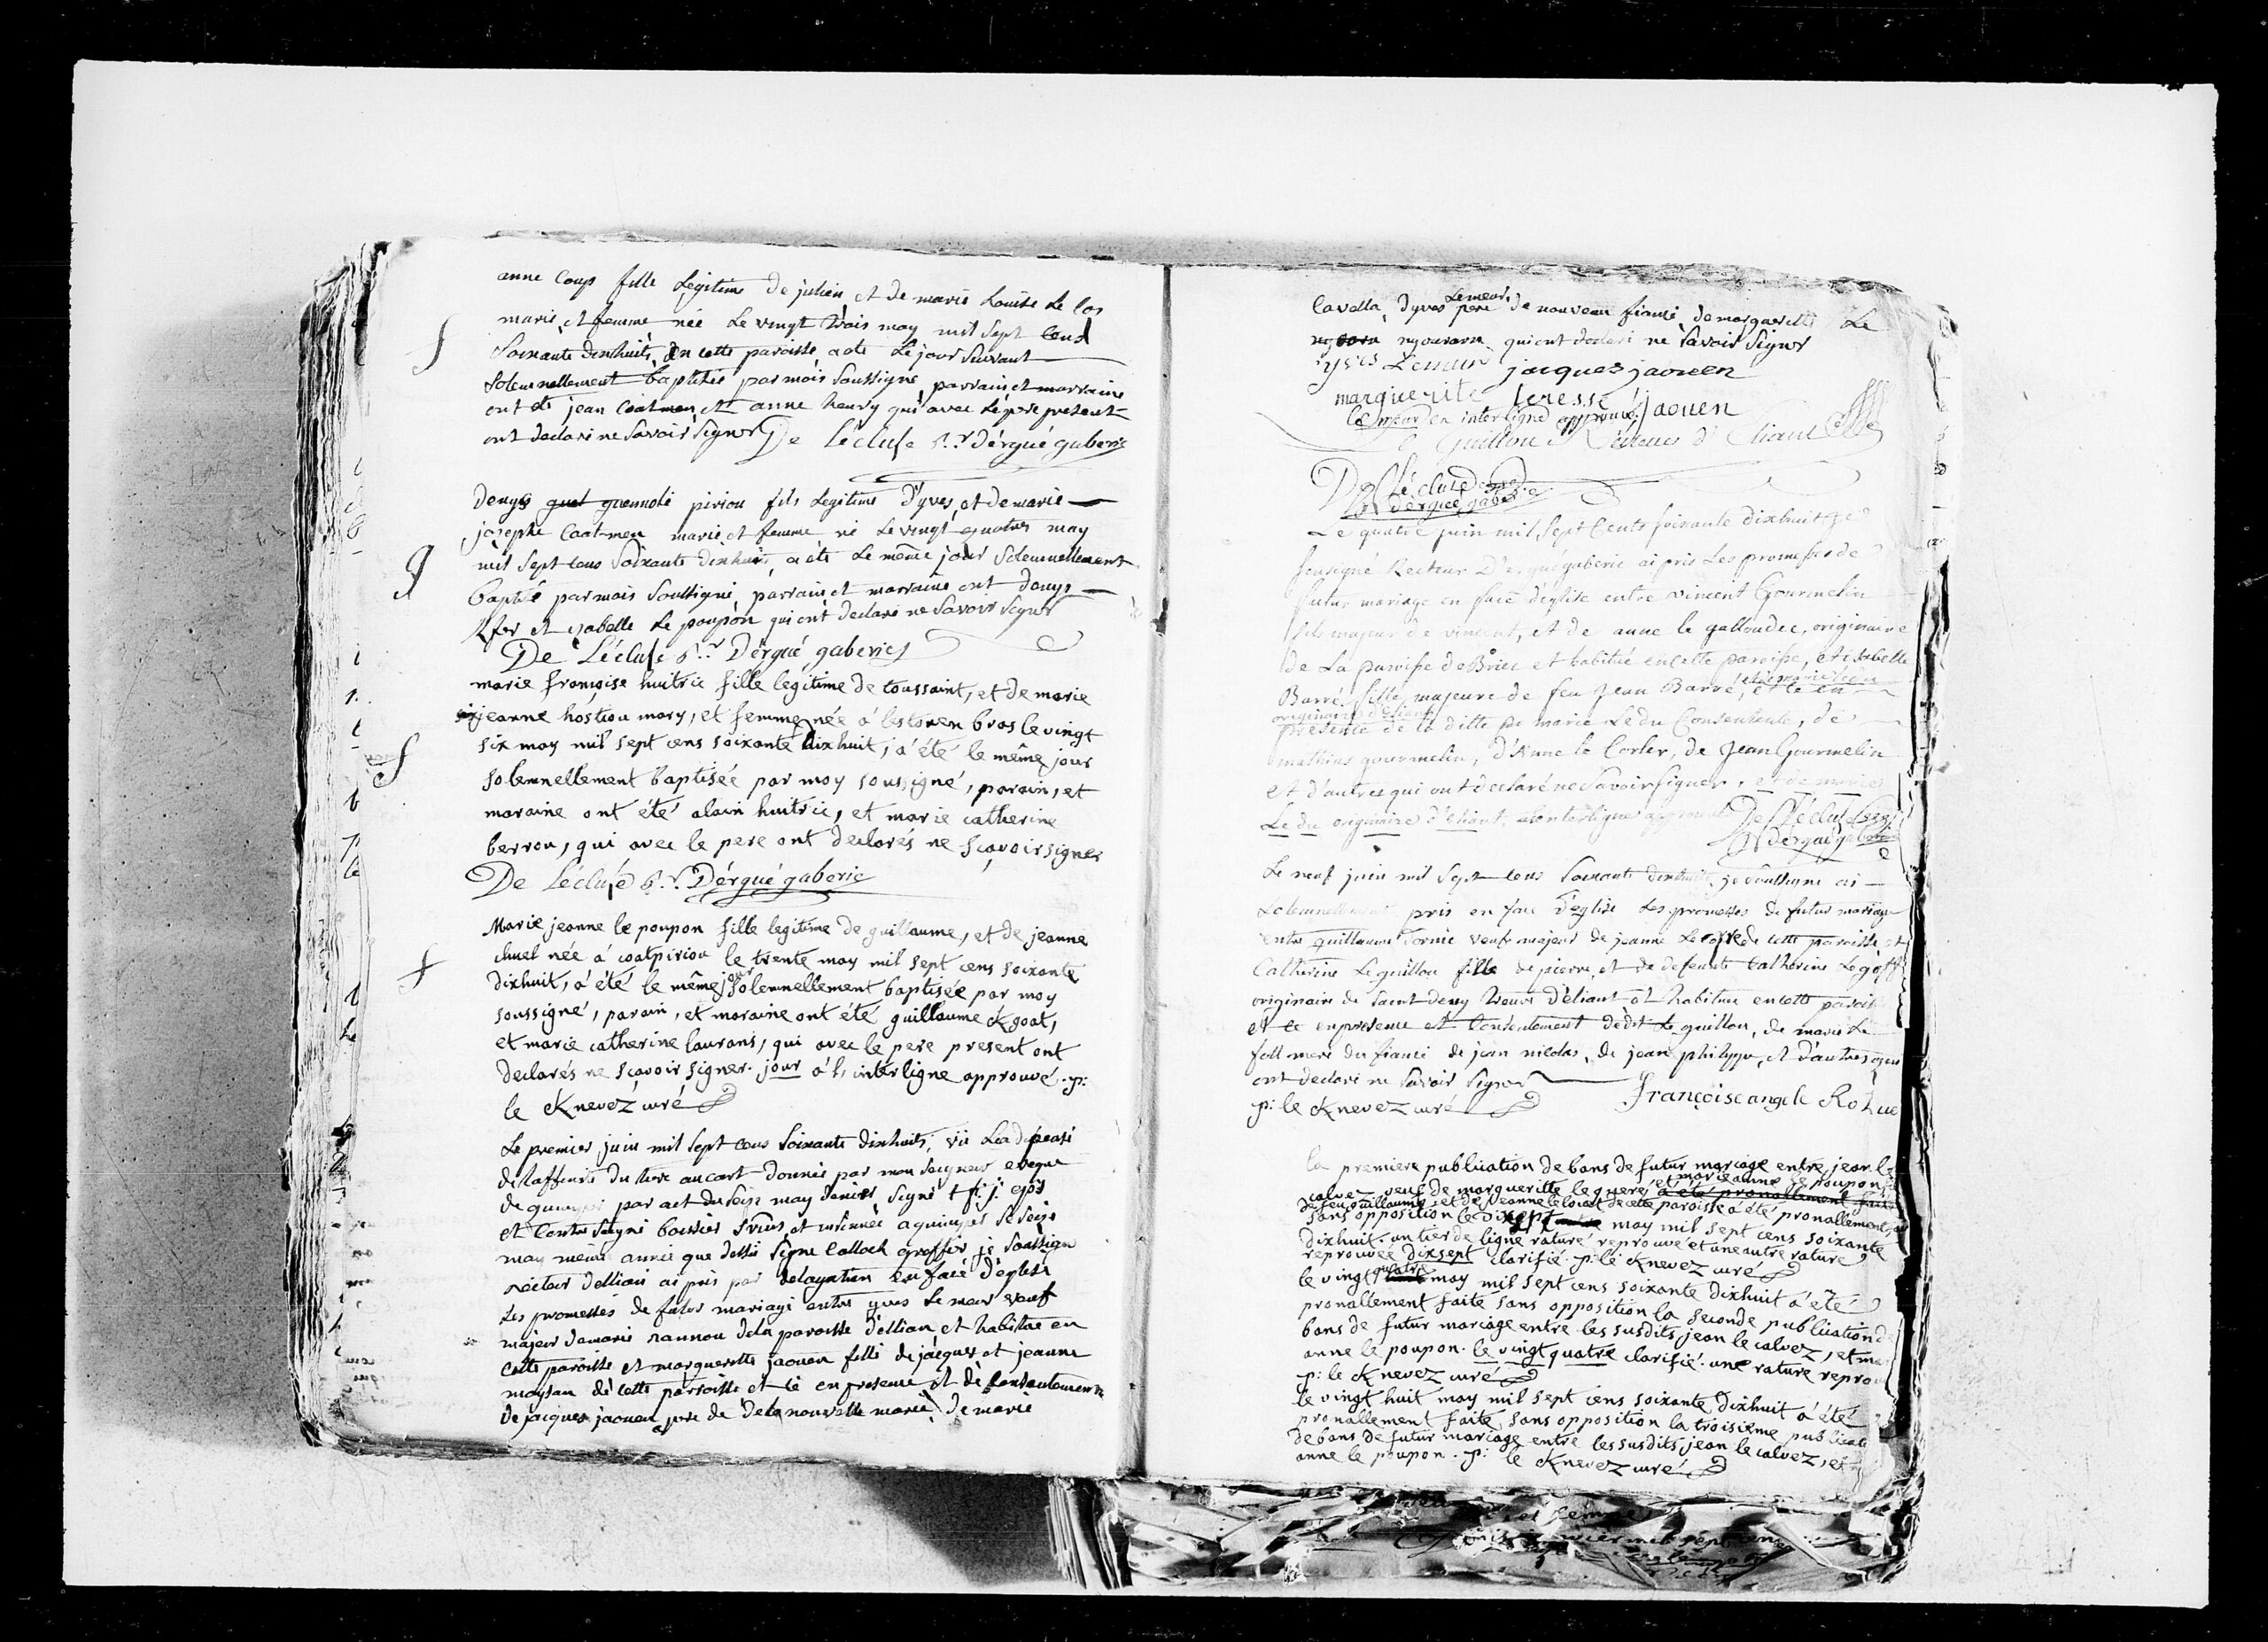 anne Coup fille Legitime de julien et de marie Louise Le Cos
marie et femme née Le vingt trois may mil sept Cens
Soixante dixhuits, en cette paroisse, a ete Le jour suivant
solemnellement baptisée par mois soussigné, parrain et marraine
ont ete jean Coatmen, et anne henry qui avec le pere present
ont declaré ne savoir signer De Lécluse r.r dérgué gaberic
denys guenolé piriou fils Legitime d'yves, et de marie
josephe Coatmen marie et femme né Le vingt quatres may
mil sept Cens Soixante dixhuit, a ete Le même jour solemnellement
baptisé par mois soussigné, parrain et marraine ont denys
et ysabelle Le poupon qui ont declaré ne Savoir signer
De Lécluse r.r Dérgué gaberic
marie françoise huitric fille legitime de toussaint, et de marie
jeanne hostiou mary, et femme née à lestonen bras le vingt
six may mil sept cens soixante dixhuit, a été le même jour
solemnellement baptisée par moy soussigné, parain, et
maraine ont été alain huitric, et marie catherine
berrou, qui avec le pere ont declarés ne sçavoir signer
De Lécluse r.r Dérgué gaberic
Marie jeanne le poupon fille legitime de guillaume, et de jeanne
chuet née à coatpiriou le trente may mil sept cens soixante
dixhuit, a été le même jour solemnellement baptisée par moy
soussigné, parain, et maraine ont été guillaume Kgoat,
et marie catherine laurans, qui avec le pere present ont
declarés ne sçavoir signer. jour à l'interligne approuvé. p:
le Knevez curé
Le premier juin mil sept cens soixante dixhuits, vü La dispense
d'affinité du tiers au cart donnée par mon seigneur eveque
de quimper par act du seize may dernier signé t f: j:
et contre signé boissier et insinuée a quimper le seize
may meme année que dessus signe Callock greffier je soussigné
recteur delliant ai pris par delegation en face d'eglise
Les promesses de futur mariage entre yves Le meur veuf
majeur de marie rannou de la paroisse d'ellian et habitué en
cette paroisse et marguerite jaouen fille de jacques et jeanne
moysan de cette paroisse et ce en presence et de Consentement
de jacques jaouen pere de de la nouvelle mariée, de marie
Cavella, d'yves Lemeur pere de nouveau fiancé, de marguerite Le
ngouaran qui ont declaré ne Savoir Signer
yves Lemeur jacques jaouen
marguerite teresse jaouen
le meur en interligne approuvé
guillou Recteur d'Eliant
De Lécluse
r.r dérgué gaberic
Le quatre juin mil sept Cents soixante dixhuit je
soussigné Recteur D'ergué gaberic ai pris Les promesses de
futur mariage en face d'église entre vincent Gourmelin
fils majeur de vincent, et de anne le galloudec, originaire
de La paroisse de Briec et habitué en cette paroisse, et isabelle
Barré fille majeure de feu jean Barré, et de marie ledu
originaire d'Eliant et ce en
presence de la ditte de marie Ledu Consentente, de
mathias gourmelin, d'Anne le Corler, de Jean Gourmelin
et d'autres qui ont declaré ne Savoir signer, et de marie
Le du originaire d'Eliant a l'interligne approuvé De Lécluse
r.r dérgué gaberic
Le neuf juin mil sept cens soixante dixhuits je soussigné ai
solemnellement pris en face d'eglise Les promesses de futur mariage
entre guillaume Cornic veuf majeur de jeanne Le de cette paroisse et
Catherine Le guillou fille de pierre et de defeunte Catherine Le goff
originaire de saint deny treve d'éliant et habituée en cette paroisse
et ce en presence et Consentement dedit Le guillou, de marie Le
foll mere du fiancé de jean nicolas, de jean philippe, et d'autres qui
ont declaré ne Savoir signer
p: le Knevez curé Françoise angele Rohue
la premiere publication de bans de futur mariage entre jean le
calvez veuf de margueritte le guere, et marie anne le poupon fille
de feu guillaume, et de jeanne le loiet de cette paroisse a été pronallement, faite
sans opposition le dixsept may mil sept cens soixante
dixhuit. un tier de ligne raturé reprouvé et une autre rature
reprouvée dixsept clarifié. p: le Knevez curé
le vingt quatre may mil sept cens soixante dixhuit a été
pronallement faite sans opposition la seconde publication de
bans de futur mariage entre les susdits jean le calvez, et marie
anne le poupon. le vingt quatre clarifié. une rature reprou
p: le Knevez curé
le vingt huit may mil sept cens soixante dixhuit a été
pronallement faite sans opposition la troisieme publicati
de bans de futur mariage entre les susdits jean le calvez, et
anne le poupon. p: le Knevez curé